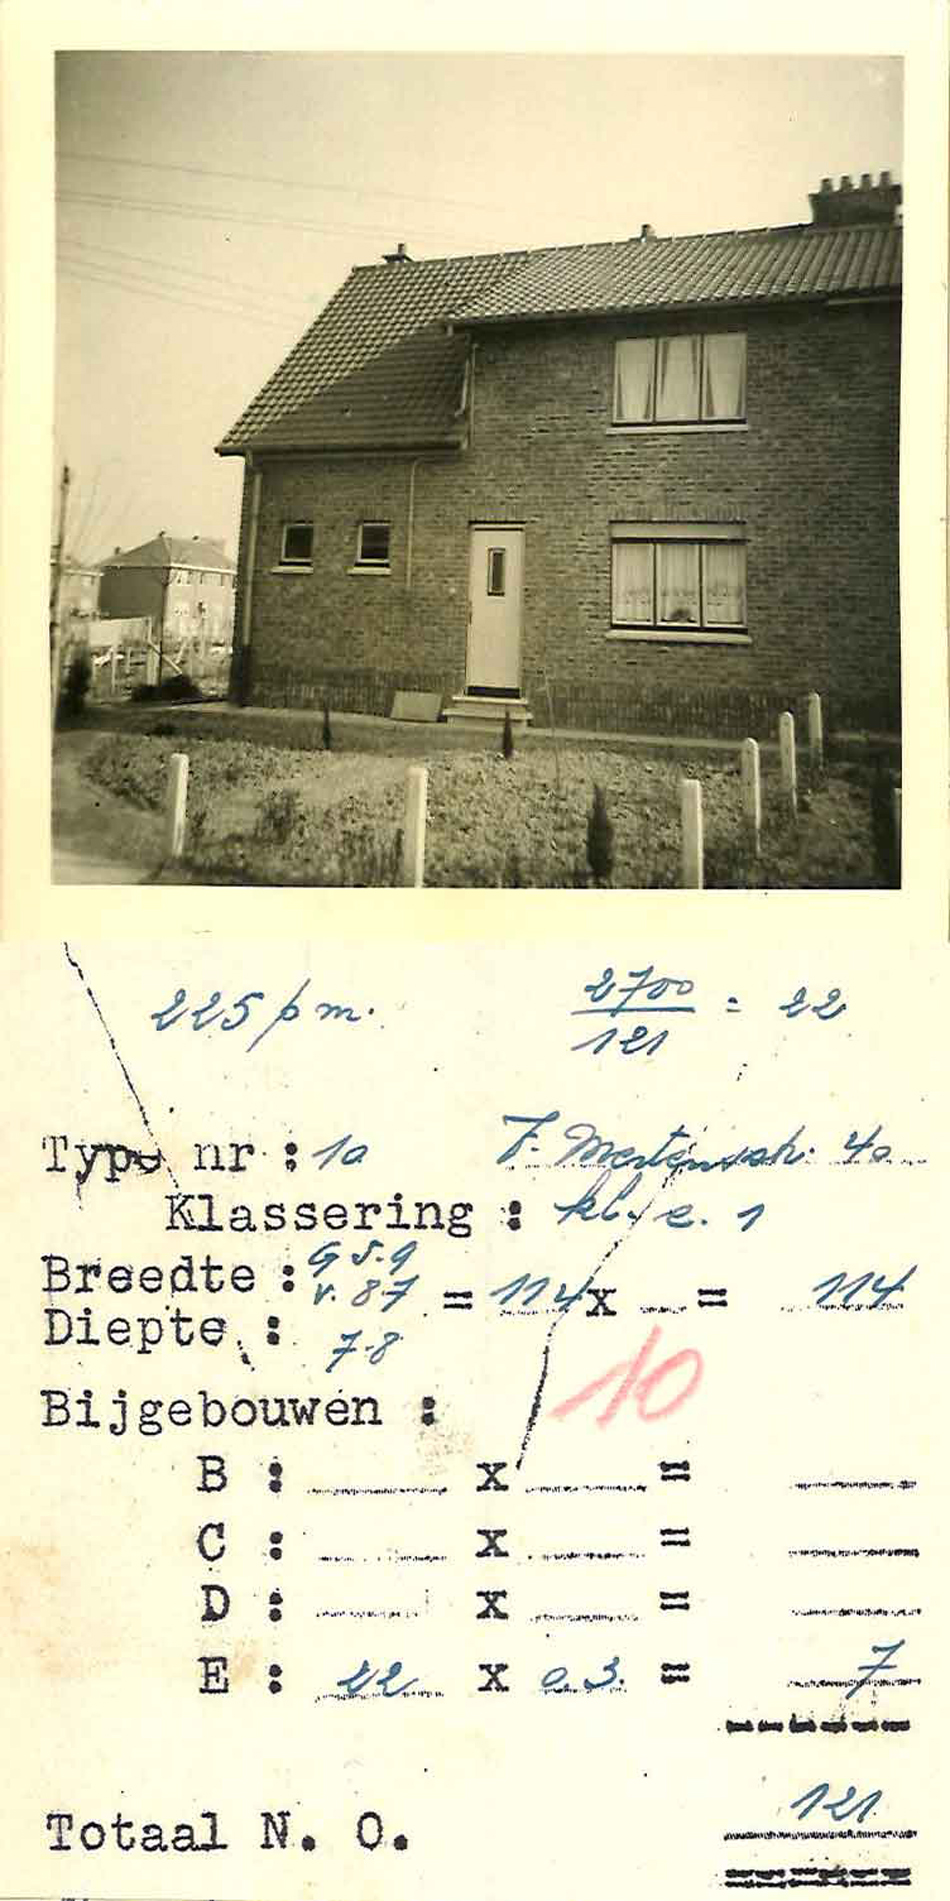 225 p m.
2700
121 = 22
Type nr : 1a F. Mertensstr. 40
Klassering : kl. e. 1
Breedte : G 5.9
v. 87 = 114 x = 114
Diepte : 7-8
Bijgebouwen : 10
B : x =
C : x =
D : x =
E : 22 x 0.3. = 7
Totaal N. O. 121